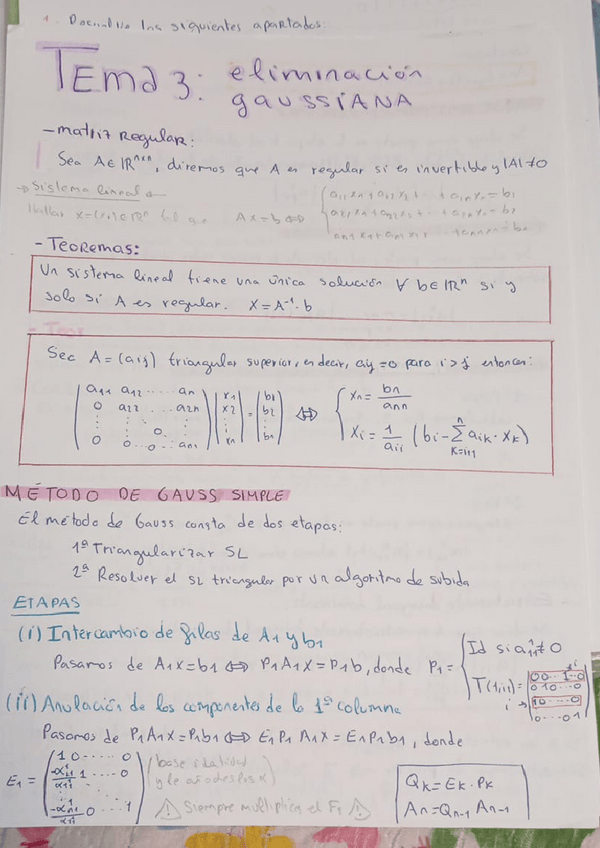 1. Desarrolla los siguientes apartados:
Tema 3: eliminación
gaussiana
- matriz Regular:
Sea A∈ℝⁿˣⁿ, diremos que A es regular si es invertible y |A|≠0
→ Sistema lineal
Hallar x=(xᵢ)∈ℝⁿ tal que Ax=b ⇔ { a₁₁x₁+a₁₂x₂+...+a₁ₙxₙ=b₁
a₂₁x₁+a₂₂x₂+...+a₂ₙxₙ=b₂
aₙ₁x₁+aₙ₂x₂+...+aₙₙxₙ=bₙ
- Teoremas:
Un sistema lineal tiene una única solución ∀ b∈ℝⁿ si y
solo si A es regular. X=A⁻¹·b
- Teor
Sea A=(aij) triangular superior, es decir, aij=0 para i>j entonces:
( a11 a12 ... an ) ( x1 ) = ( b1 ) ⇔ { xn = bn / ann
( 0 a22 ... a2n ) ( x2 ) ( b2 )
( ⋮ ⋮ 0 ⋮ ) ( ⋮ ) ( ⋮ ) xi = 1/aii (bi - Σ k=i+1 n aik · xk)
( 0 0 ... 0 ann ) ( xn ) ( bn )
MÉTODO DE GAUSS SIMPLE
El método de Gauss consta de dos etapas:
1ª Triangularizar SL
2ª Resolver el SL triangular por un algoritmo de subida
ETAPAS
(i) Intercambio de filas de A1 y b1
Pasamos de A1x=b1 ⇔ P1A1x=P1b, donde P1= { Id si a¹11≠0
T(1,i1)= ( 0 0 ... 1 ... 0 )
( 0 1 0 ... 0 )
i → ( 1 0 ... 0 )
( 0 ... 0 1 )
(ii) Anulación de los componentes de la 1ª columna
Pasamos de P1A1x=P1b1 ⇔ E1P1A1x=E1P1b1, donde
E1 = ( 1 0 ... 0 ) (base identidad
( -α21/α11 1 ... 0 ) y le añades los α)
( ⋮ ⋮ )
( -αn1/α11 0 ... 1 ) ⚠ Siempre multiplica el F1 ⚠
Qk=Ek·Pk
An=Qn-1 An-1